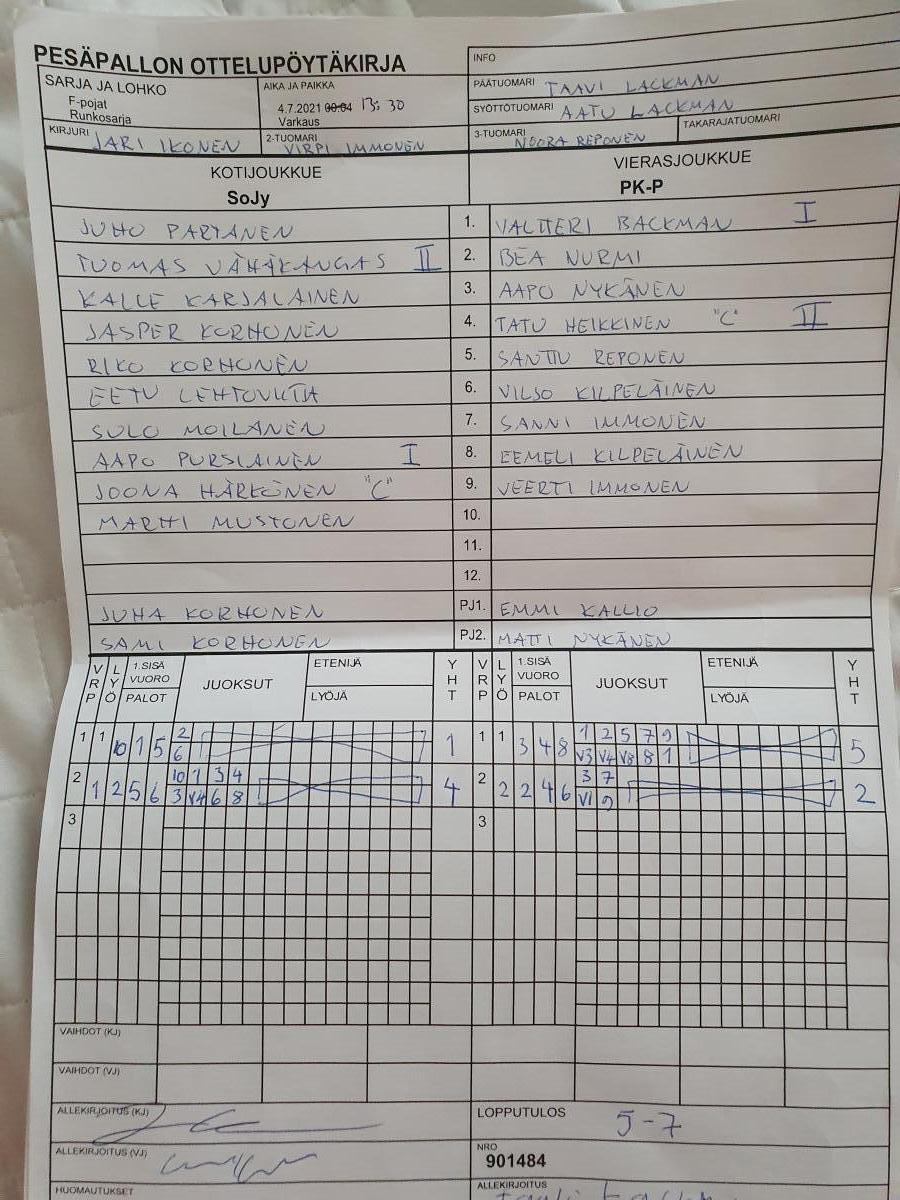 PESÄPALLON OTTELUPÖYTÄKIRJA
INFO
SARJA JA LOHKO
F-pojat
Runkosarja
AIKA JA PAIKKA
4.7.2021 00:04 13:30
Varkaus
PÄÄTUOMARI TAAVI LACKMAN
SYÖTTÖTUOMARI AATU LACKMAN
KIRJURI JARI IKONEN
2-TUOMARI VIRPI IMMONEN
3-TUOMARI NOORA REPONEN
TAKARAJATUOMARI
KOTIJOUKKUE
SoJy
VIERASJOUKKUE
PK-P
JUHO PARTANEN 1. VALTTERI BACKMAN I
TUOMAS VÄHÄKANGAS II 2. BEA NURMI
KALLE KARJALAINEN 3. AAPO NYKÄNEN
JASPER KORHONEN 4. TATU HEIKKINEN "C" II
RIKO KORHONEN 5. SANTTU REPONEN
EETU 6. VILSO KILPELÄINEN
SULO MOILANEN 7. SANNI IMMONEN
AAPO PURSIAINEN I 8. EEMELI KILPELÄINEN
JOONA HÄRKÖNEN "C" 9. VEERTI IMMONEN
MARTTI MUSTONEN 10.
11.
12.
JUHA KORHONEN PJ1. EMMI KALLIO
SAMI KORHONEN PJ2. MATTI NYKÄNEN
VRP LYÖ 1.SISÄ VUORO PALOT JUOKSUT ETENIJÄ LYÖJÄ YHT VRP LYÖ 1.SISÄ VUORO PALOT JUOKSUT ETENIJÄ LYÖJÄ YHT
1 1 10 1 5 2 1 1 1 3 4 8 1 2 5 7 9 5
6 V3 V4 V8 8 1
2 1 2 5 6 10 1 3 4 4 2 2 2 4 6 3 7 2
3 V4 6 8 V1 9
3 3
VAIHDOT (KJ)
VAIHDOT (VJ)
ALLEKIRJOITUS (KJ)
LOPPUTULOS 5-7
ALLEKIRJOITUS (VJ)
NRO
901484
HUOMAUTUKSET
ALLEKIRJOITUS